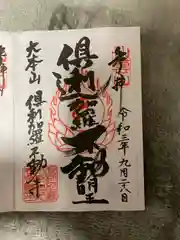 奉拝
令和三年九月二八日
倶利迦羅不動明王
大本山
倶利迦羅不動寺